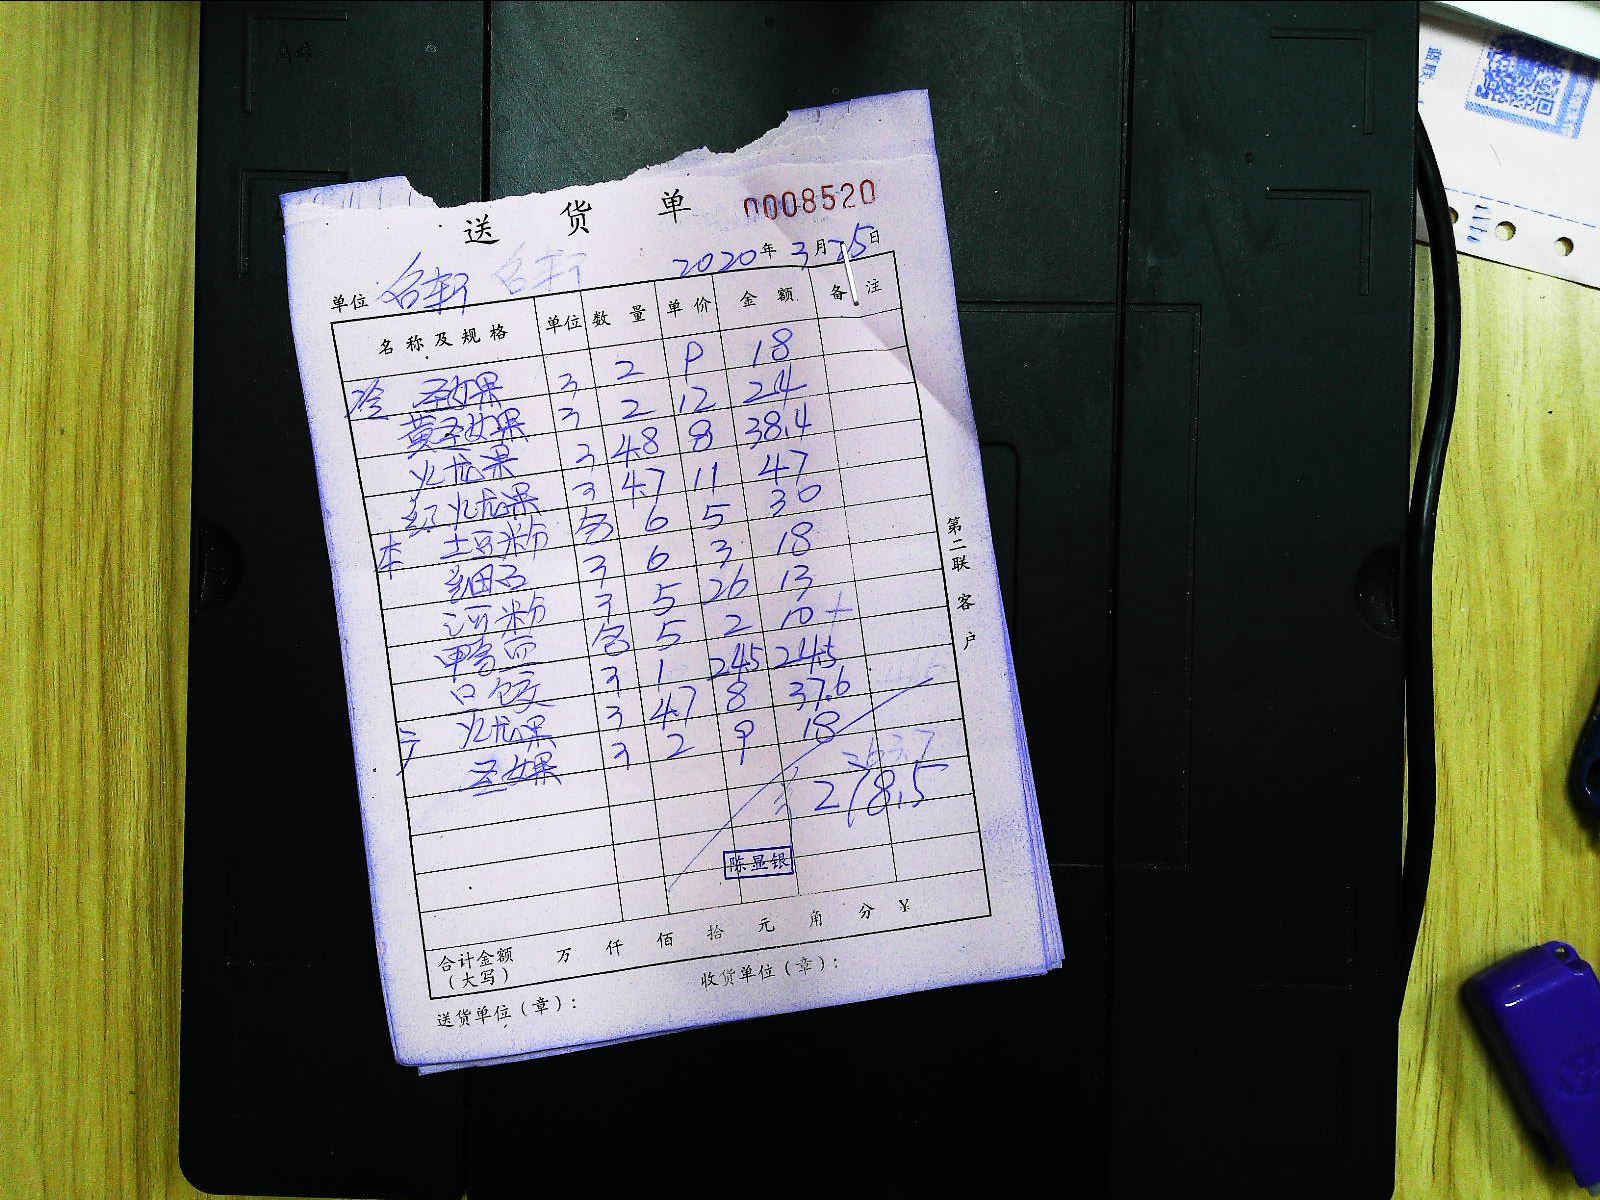 A4
送货单 0008520
2020年3月25日
单位
名称及规格 单位 数量 单价 金额 备注
冷 圣女果 3 2 9 18
黄圣女果 3 2 12 24
火龙果 3 4.8 8 38.4
红火龙果 3 4.7 11 47
本 土豆粉 包 6 5 30
3 6 3 18
河粉 3 5 26 13
鸭血 包 5 2 10
口饺 3 1 245 245
火龙果 3 4.7 8 37.6
圣女果 3 2 9 18
278.5
陈显银
合计金额（大写） 万 仟 佰 拾 元 角 分 ¥
送货单位（章）： 收货单位（章）：
第二联 客户